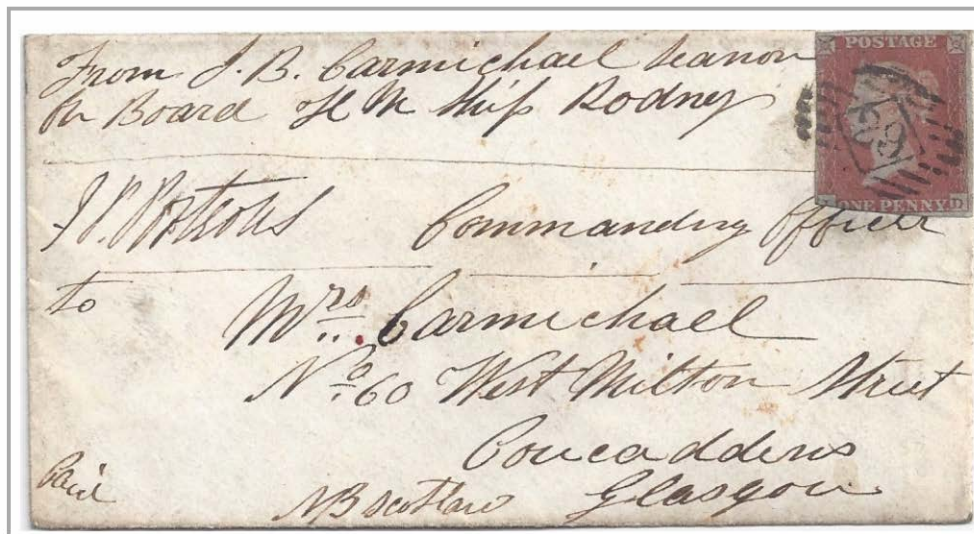 From J. B. Carmichael Seaman
On Board H M Ship Rodney
POSTAGE
ONE PENNY
D
Commanding Officer
to
Mrs Carmichael
No 60 West Milton Street
Coucaddens
Glasgow
Paid
NB Scotland